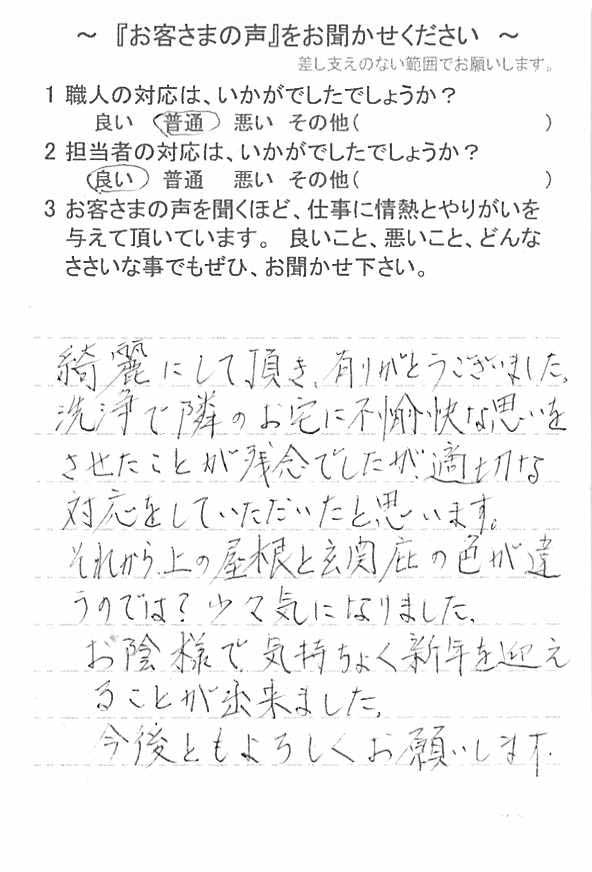 ～ 『お客さまの声』をお聞かせください ～
差し支えのない範囲でお願いします。
1 職人の対応は、いかがでしたでしょうか？
良い 普通 悪い その他( )
2 担当者の対応は、いかがでしたでしょうか？
良い 普通 悪い その他( )
3 お客さまの声を聞くほど、仕事に情熱とやりがいを
与えて頂いています。 良いこと、悪いこと、どんな
ささいな事でもぜひ、お聞かせ下さい。
綺麗にして頂き、有りがとうございました。
洗浄で隣のお宅に不愉快な思いを
させたことが残念でしたが、適切な
対応をしていただいたと思います。
それから上の屋根と玄関庇の色が違
うのでは？少々気になりました。
お陰様で気持ちよく新年を迎え
ることが出来ました。
今後ともよろしくお願いします。